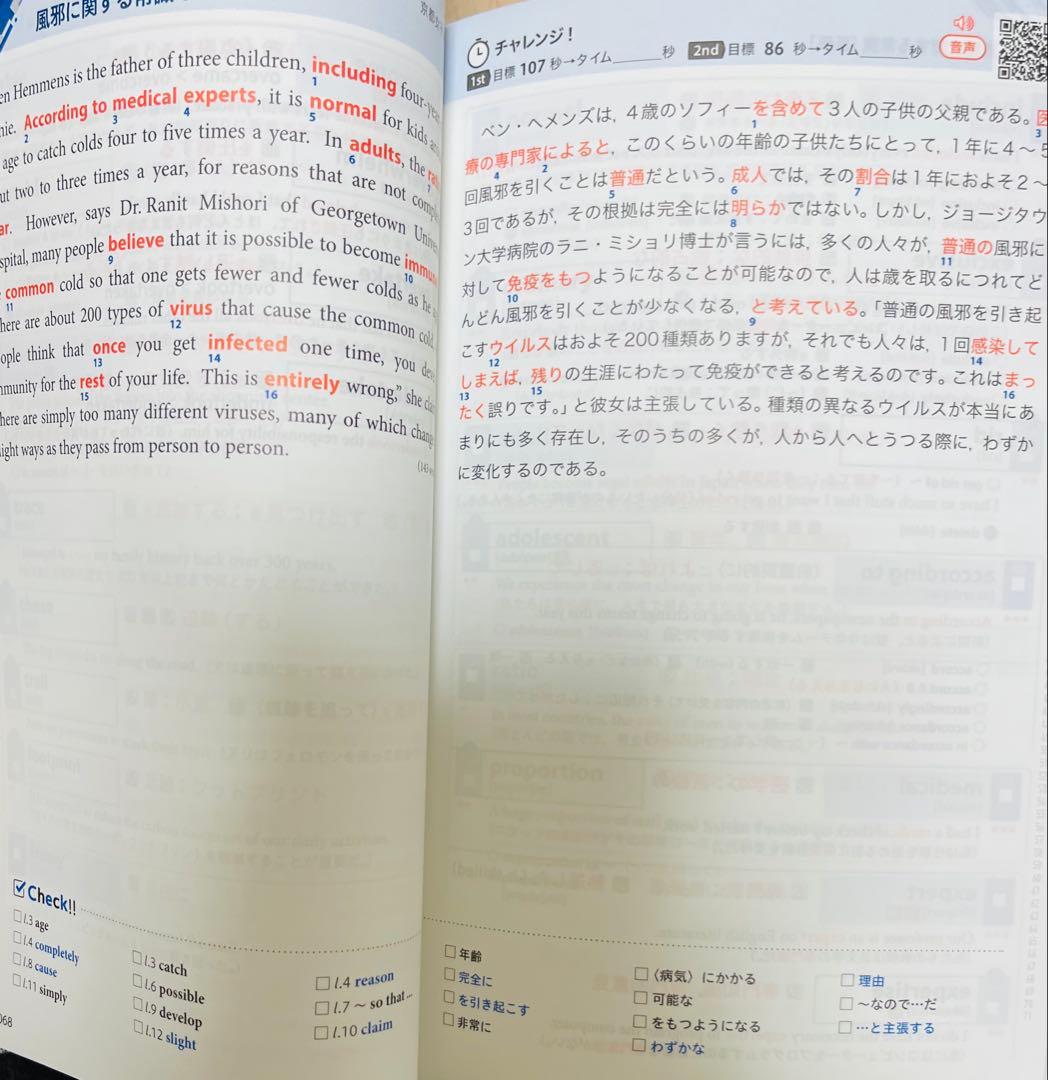 風邪に関する
京都
en Hemmens is the father of three children, including four-
1
nie. According to medical experts, it is normal for kids
2 3 4 5
age to catch colds four to five times a year. In adults, the
6
ut two to three times a year, for reasons that are not
ar. However, says Dr. Ranit Mishori of Georgetown
spital, many people believe that it is possible to become
9 10
common cold so that one gets fewer and fewer colds as he
11
here are about 200 types of virus that cause the common
12
ople think that once you get infected one time, you
13 14
mmunity for the rest of your life. This is entirely wrong," she
15 16
here are simply too many different viruses, many of which
light ways as they pass from person to person.
Check!!
l.3 age
l.4 completely
l.8 cause
l.11 simply
l.3 catch
l.6 possible
l.9 develop
l.12 slight
l.4 reason
l.7 ~ so that...
l.10 claim
068
チャレンジ！
1st 目標 107 秒→タイム______秒 2nd 目標 86 秒→タイム______秒
音声
ベン・ヘメンズは，4歳のソフィーを含めて3人の子供の父親である。医
1 3
療の専門家によると，このくらいの年齢の子供たちにとって，1年に4～5
4 2
回風邪を引くことは普通だという。成人では，その割合は1年におよそ2～
5 6 7
3回であるが，その根拠は完全には明らかではない。しかし，ジョージタウ
8
ン大学病院のラニ・ミショリ博士が言うには，多くの人々が，普通の風邪に
11
対して免疫をもつようになることが可能なので，人は歳を取るにつれてど
10
んどん風邪を引くことが少なくなる，と考えている。「普通の風邪を引き起
9
こすウイルスはおよそ200種類ありますが，それでも人々は，1回感染して
12 14
しまえば，残りの生涯にわたって免疫ができると考えるのです。これはまっ
13 15 16
たく誤りです。」と彼女は主張している。種類の異なるウイルスが本当にあ
まりにも多く存在し，そのうちの多くが，人から人へとうつる際に，わずか
に変化するのである。
年齢
完全に
を引き起こす
非常に
〈病気〉にかかる
可能な
をもつようになる
わずかな
理由
～なので…だ
…と主張する